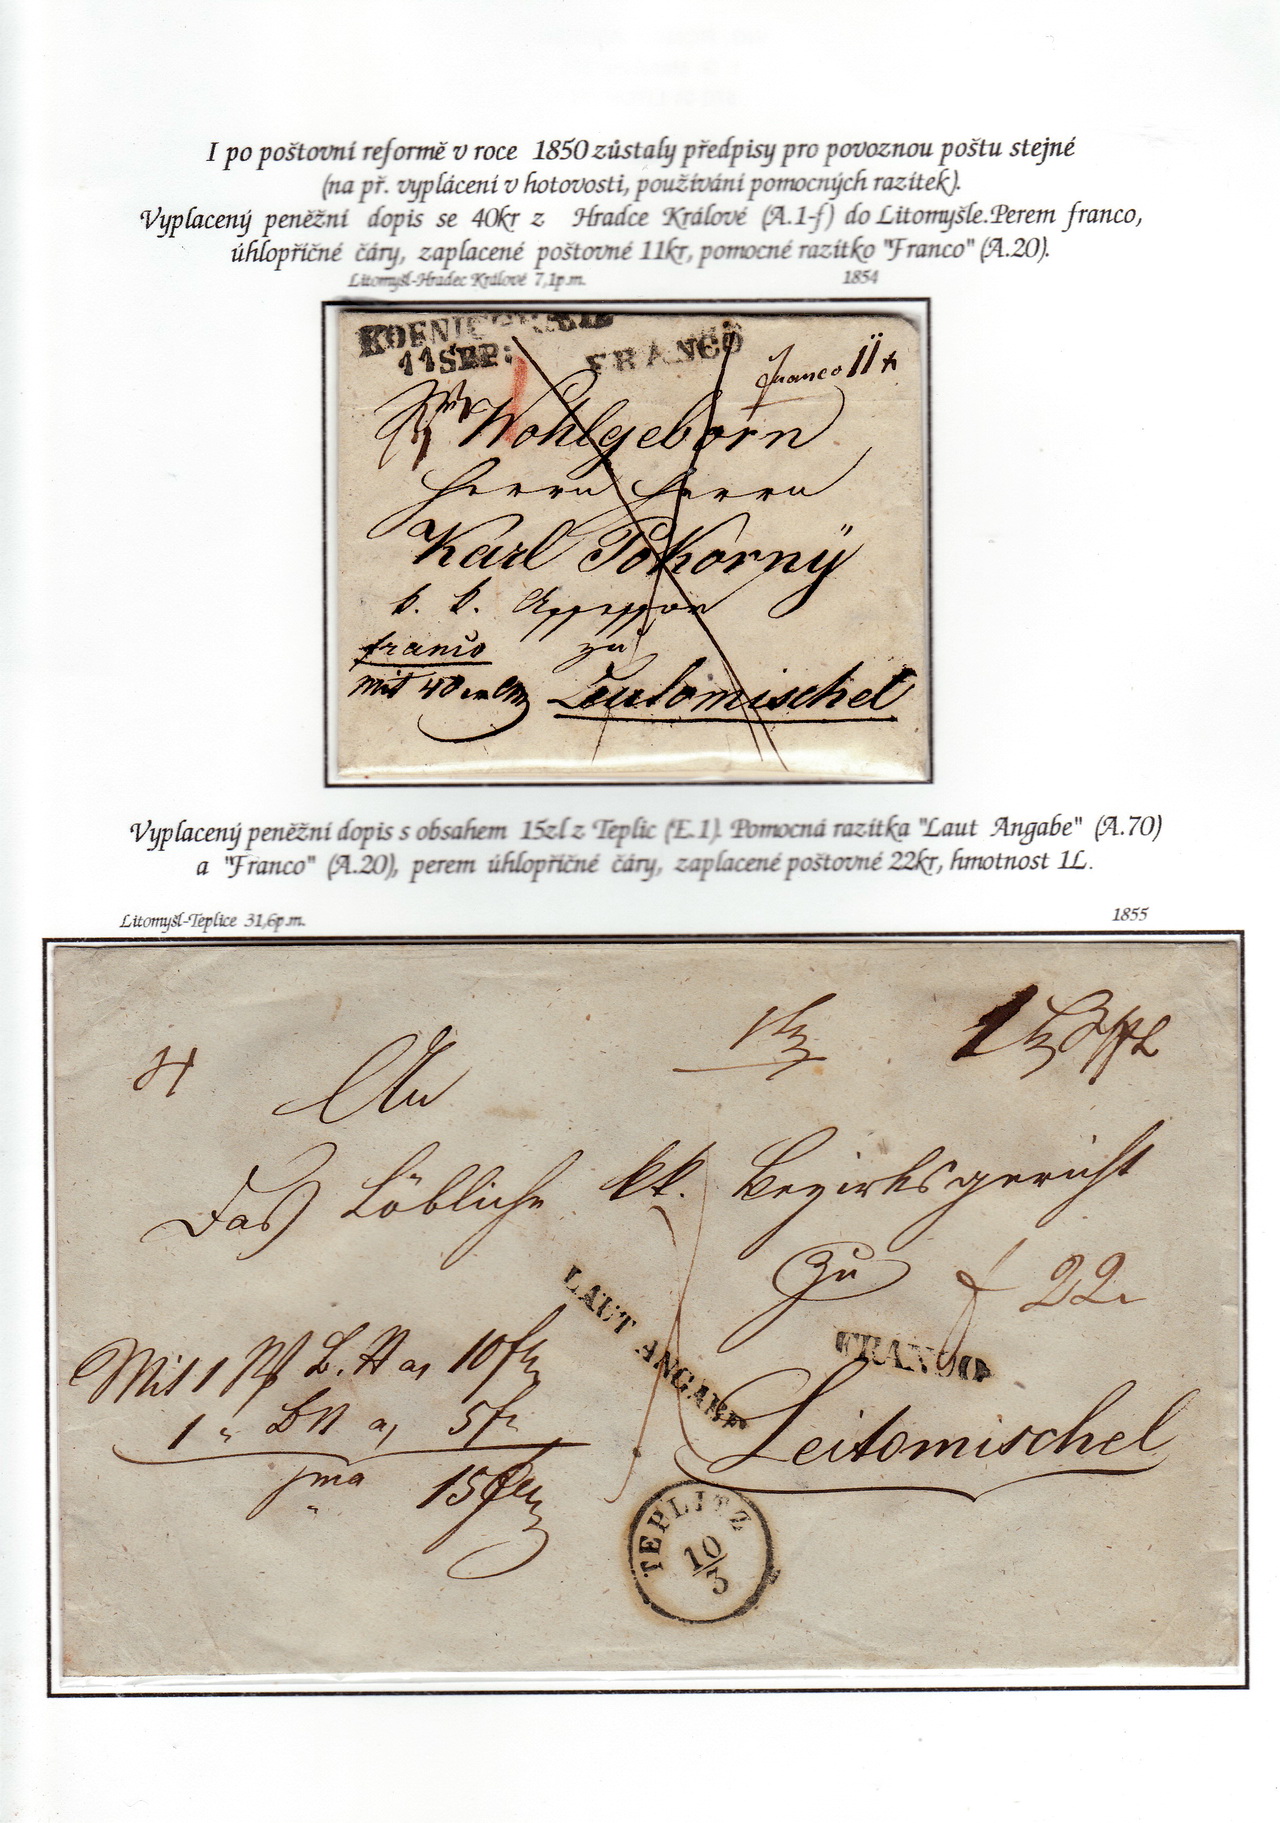 I po poštovní reformě v roce 1850 zůstaly předpisy pro povoznou poštu stejné
(na př. vyplácení v hotovosti, používání pomocných razítek).
Vyplacený peněžní dopis se 40kr z Hradce Králové (A.1-f) do Litomyšle.Perem franco,
úhlopříčné čáry, zaplacené poštovné 11kr, pomocné razítko "Franco" (A.20).
Litomyšl-Hradec Králové 7,1p.m. 1854
11 SEP:
FRANCO
franco 11
Wohlgeborn
Herrn Herrn
Karl Pokornÿ
k. k. Assessor
franco zu
mit 40 Leutomischel
Vyplacený peněžní dopis s obsahem 15zl z Teplic (E.1). Pomocná razítka "Laut Angabe" (A.70)
a "Franco" (A.20), perem úhlopříčné čáry, zaplacené poštovné 22kr, hmotnost 1L.
Litomyšl-Teplice 31,6p.m. 1855
An
Das Löbliche kk. Bezirksgericht
zu f 22
LAUT ANGABE
FRANCO
Mit 1 B. N a 10
1 " BN a 5f
15
Leitomischel
TEPLITZ
10/3